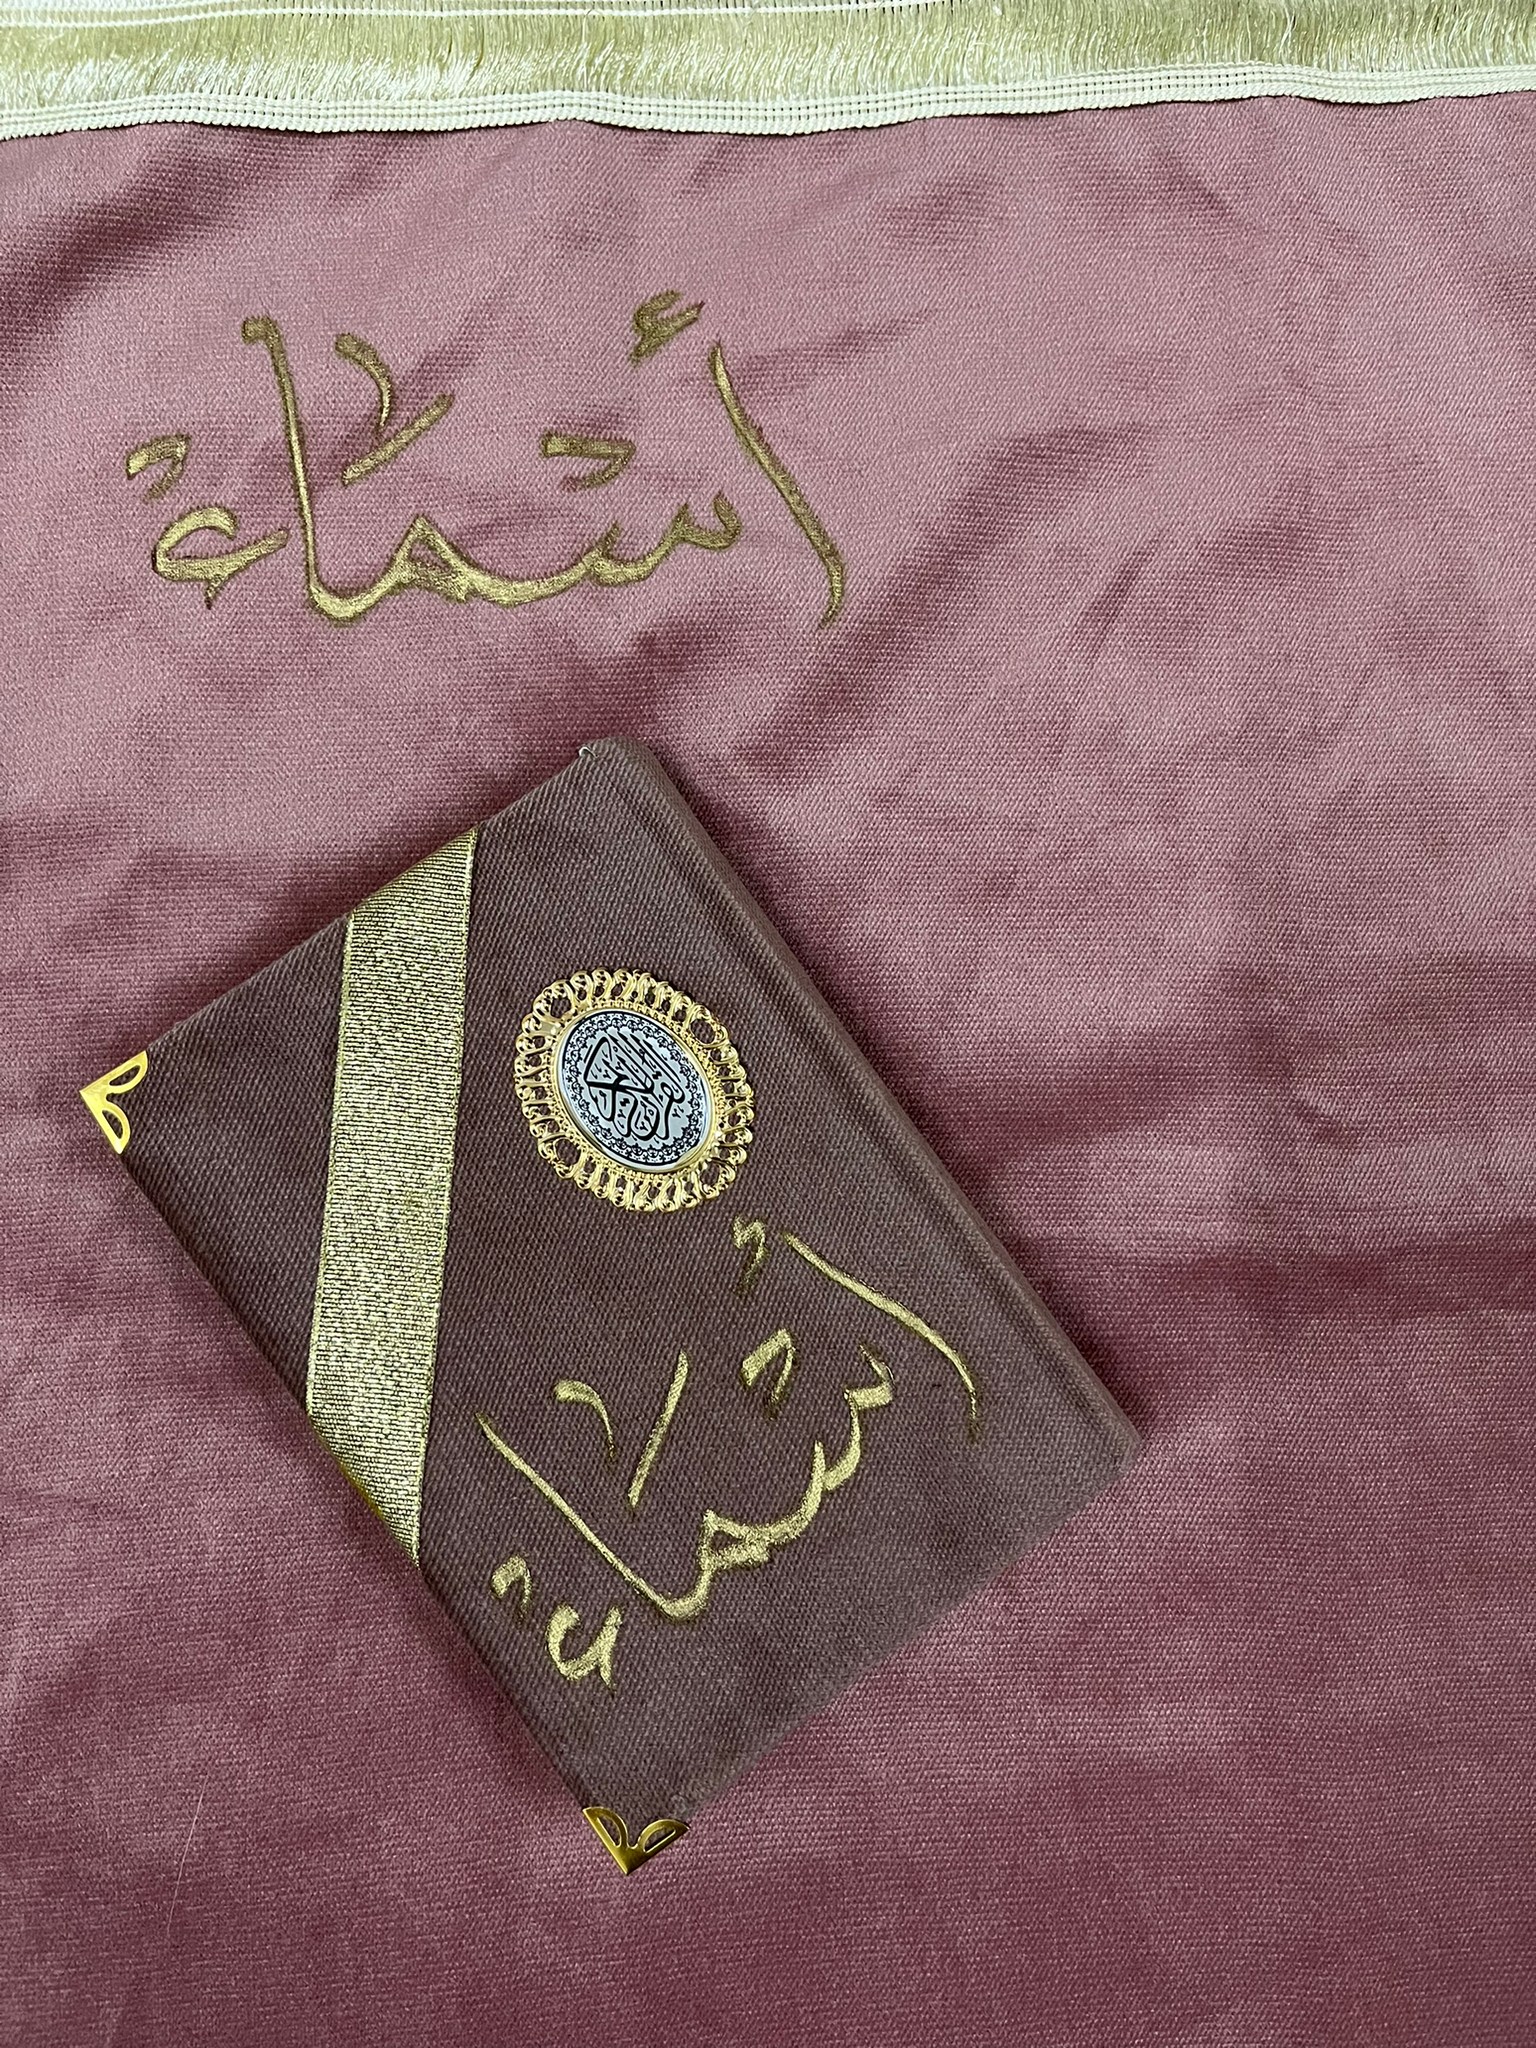 أسماء
القرآن الكريم
أسماء